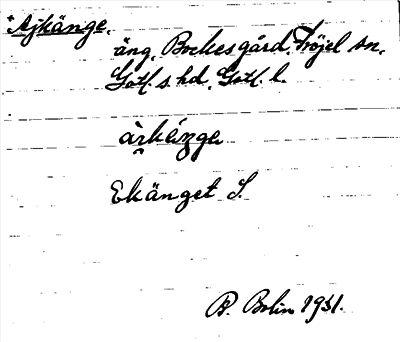 *Ajkänge,
äng, Bockes gård, Fröjel sn,
Gotl. s. hd, Gotl. l.
Ekänget S.
B. Bolin 1931.